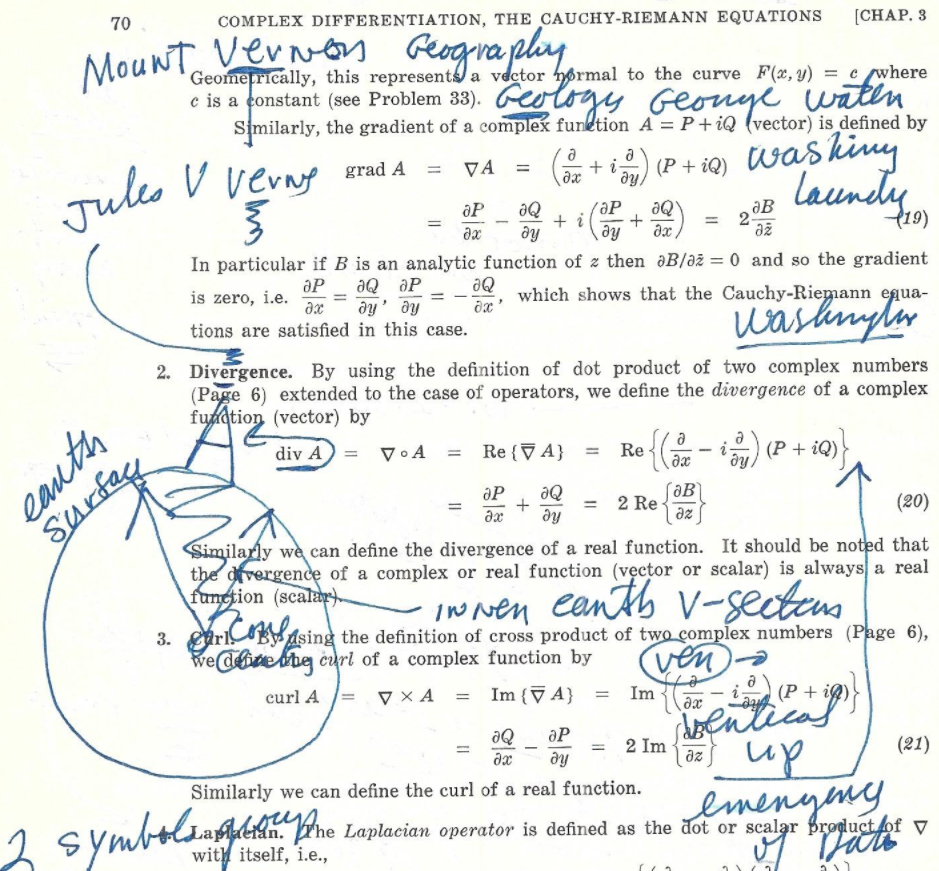 70 COMPLEX DIFFERENTIATION, THE CAUCHY-RIEMANN EQUATIONS [CHAP. 3
Mount Vernon Geography
Geometrically, this represents a vector normal to the curve F(x, y) = c, where
c is a constant (see Problem 33). Geology George water
Similarly, the gradient of a complex function A = P + iQ (vector) is defined by
grad A = ∇A = (∂/∂x + i ∂/∂y) (P + iQ) washing
Jules V Verne laundry
= ∂P/∂x − ∂Q/∂y + i (∂P/∂y + ∂Q/∂x) = 2 ∂B/∂z̄ (19)
In particular if B is an analytic function of z then ∂B/∂z̄ = 0 and so the gradient
is zero, i.e. ∂P/∂x = ∂Q/∂y, ∂P/∂y = −∂Q/∂x, which shows that the Cauchy-Riemann equa-
tions are satisfied in this case.
Washington
2. Divergence. By using the definition of dot product of two complex numbers
(Page 6) extended to the case of operators, we define the divergence of a complex
function (vector) by
div A = ∇ ∘ A = Re {∇̄ A} = Re {(∂/∂x − i ∂/∂y) (P + iQ)}
earth
surface
= ∂P/∂x + ∂Q/∂y = 2 Re {∂B/∂z} (20)
Similarly we can define the divergence of a real function. It should be noted that
the divergence of a complex or real function (vector or scalar) is always a real
function (scalar).
inner earth V-sectors
3. Curl. By using the definition of cross product of two complex numbers (Page 6),
we define the curl of a complex function by
ver
curl A = ∇ × A = Im {∇̄ A} = Im {(∂/∂x − i ∂/∂y) (P + iQ)}
vertical
= ∂Q/∂x − ∂P/∂y = 2 Im {∂B/∂z} (21)
up
Similarly we can define the curl of a real function.
emergency
2 symbols group
4. Laplacian. The Laplacian operator is defined as the dot or scalar product of ∇
with itself, i.e.,
of